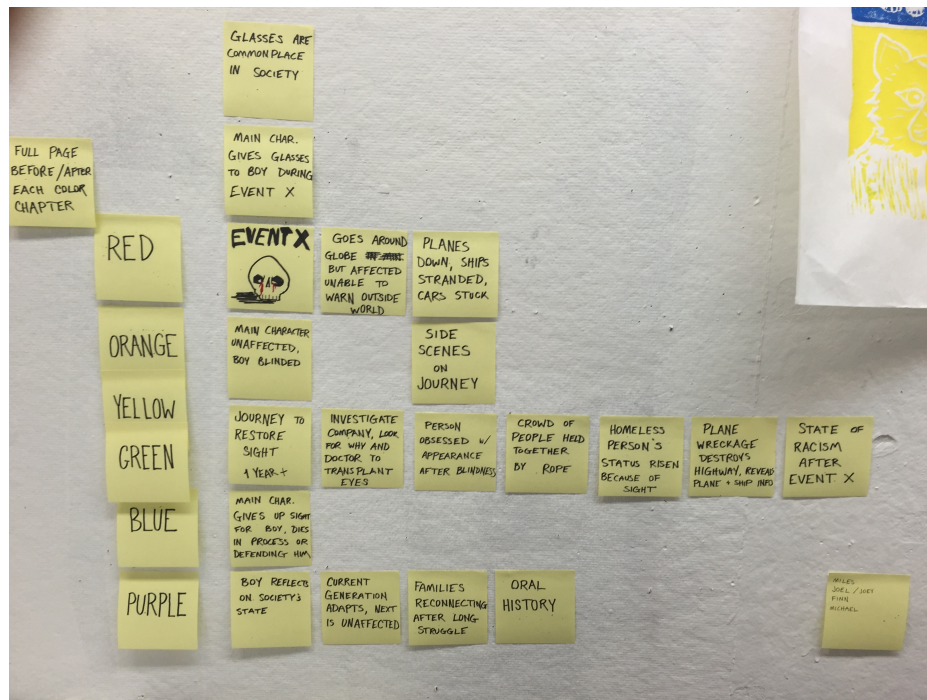 GLASSES ARE
COMMONPLACE
IN SOCIETY
MAIN CHAR.
GIVES GLASSES
TO BOY DURING
EVENT X
FULL PAGE
BEFORE/AFTER
EACH COLOR
CHAPTER
RED
EVENT X
GOES AROUND
GLOBE
BUT AFFECTED
UNABLE TO
WARN OUTSIDE
WORLD
PLANES
DOWN, SHIPS
STRANDED,
CARS STUCK
ORANGE
MAIN CHARACTER
UNAFFECTED,
BOY BLINDED
SIDE
SCENES
ON
JOURNEY
YELLOW
GREEN
JOURNEY TO
RESTORE
SIGHT
1 YEAR+
INVESTIGATE
COMPANY, LOOK
FOR WHY AND
DOCTOR TO
TRANSPLANT
EYES
PERSON
OBSESSED W/
APPEARANCE
AFTER BLINDNESS
CROWD OF
PEOPLE HELD
TOGETHER
BY ROPE
HOMELESS
PERSON'S
STATUS RISEN
BECAUSE OF
SIGHT
PLANE
WRECKAGE
DESTROYS
HIGHWAY, REVEAL
PLANE + SHIP INFO
STATE OF
RACISM
AFTER
EVENT X
BLUE
MAIN CHAR.
GIVES UP SIGHT
FOR BOY, DIES
IN PROCESS OR
DEFENDING HIM
PURPLE
BOY REFLECTS
ON SOCIETY'S
STATE
CURRENT
GENERATION
ADAPTS, NEXT
IS UNAFFECTED
FAMILIES
RECONNECTING
AFTER LONG
STRUGGLE
ORAL
HISTORY
MILES
JOEL / JOEY
FINN
MICHAEL